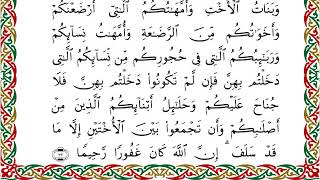 وَبَنَاتُ ٱلْأُخْتِ وَأُمَّهَٰتُكُمُ ٱلَّٰتِىٓ أَرْضَعْنَكُمْ
وَأَخَوَٰتُكُم مِّنَ ٱلرَّضَٰعَةِ وَأُمَّهَٰتُ نِسَآئِكُمْ
وَرَبَٰٓئِبُكُمُ ٱلَّٰتِى فِى حُجُورِكُم مِّن نِّسَآئِكُمُ ٱلَّٰتِى
دَخَلْتُم بِهِنَّ فَإِن لَّمْ تَكُونُوا۟ دَخَلْتُم بِهِنَّ فَلَا
جُنَاحَ عَلَيْكُمْ وَحَلَٰٓئِلُ أَبْنَآئِكُمُ ٱلَّذِينَ مِنْ
أَصْلَٰبِكُمْ وَأَن تَجْمَعُوا۟ بَيْنَ ٱلْأُخْتَيْنِ إِلَّا مَا
قَدْ سَلَفَ ۗ إِنَّ ٱللَّهَ كَانَ غَفُورًا رَّحِيمًا ۝٢٣